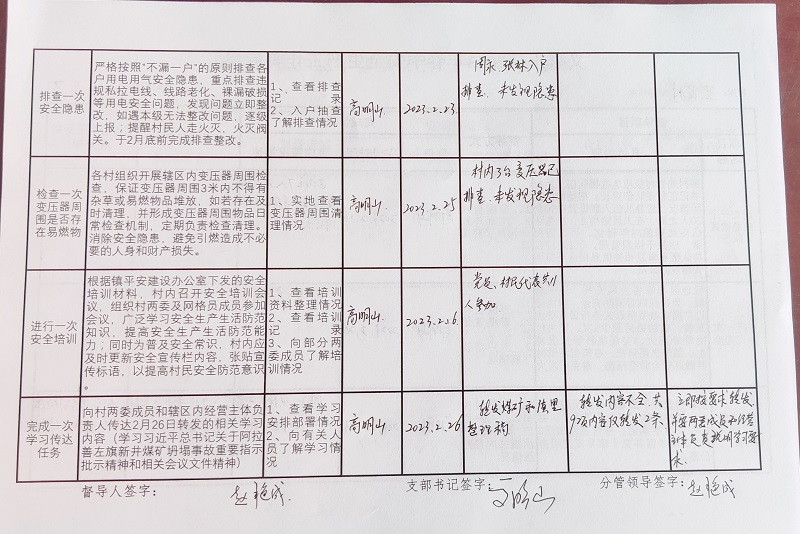 排查一次
安全隐患
严格按照“不漏一户”的原则排查各
户用电用气安全隐患，重点排查违
规私拉电线、线路老化、裸漏破损
等用电安全问题，发现问题立即整
改，如遇本级无法整改问题，逐级
上报；提醒村民人走火灭，火灭阀
关。于2月底前完成排查整改。
1、查看排查
记录
2、入户抽查
了解排查情况
高明山
2023.2.23
周永 张林入户
排查，未发现隐患
检查一次
变压器周
围是否存
在易燃物
各村组织开展辖区内变压器周围检
查，保证变压器周围3米内不得有
杂草或易燃物品堆放，如若存在及
时清理，并形成变压器周围物品日
常检查机制，定期负责检查清理。
消除安全隐患，避免引燃造成不必
要的人身和财产损失。
1、实地查看
变压器周围清
理情况
高明山
2023.2.25
村内3台变压器已
排查，未发现隐患
进行一次
安全培训
根据镇平安建设办公室下发的安全
培训材料，村内召开安全培训会
议，组织村两委及网格员成员参加
会议，广泛学习安全生产生活防范
知识，提高安全生产生活防范能
力；同时为普及安全常识，村内应
及时更新安全宣传栏内容，张贴宣
传标语，以提高村民安全防范意识
。
1、查看培训
资料整理情况
2、查看培训
记录
3、向部分两
委成员了解培
训情况
高明山
2023.2.26
党员、村民代表共11
人参加
完成一次
学习传达
任务
向村两委成员和辖区内经营主体负
责人传达2月26日转发的相关学习
内容（学习习近平总书记关于阿拉
善左旗新井煤矿坍塌事故重要指示
批示精神和相关会议文件精神）
1、查看学习
安排部署情况
2、向有关人
员了解学习情
况
高明山
2023.2.26
转发煤矿
转发内容不全 共
9项内容仅转发2条
立即按要求转发
并要两委成员和经营
主体负责
督导人签字：
赵艳成
支部书记签字：
高明山
分管领导签字：
赵艳成